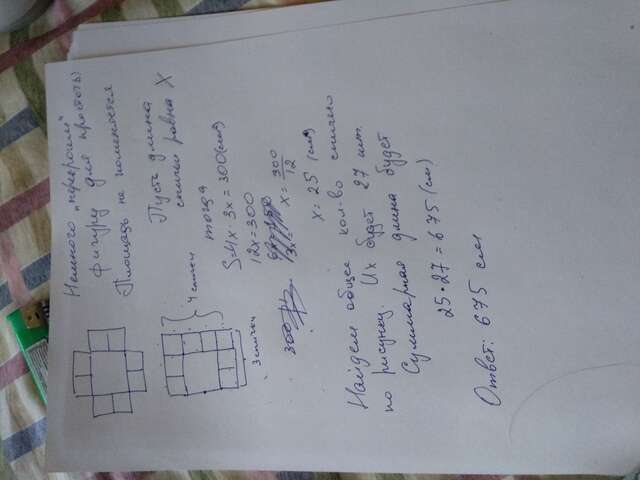 Немного "перекроим"
фигуру для простоты)
Площадь не поменяется
Пусть длина
спички равна X
тогда
S=4x·3x=300(см)
12x=300
x=300/12
x=25 (см)
4 спички
3 спички
300
3x=
Найдем общее кол-во спичек
по рисунку. Их будет 27 шт.
Суммарная длина будет
25·27=675 (см)
Ответ: 675 см